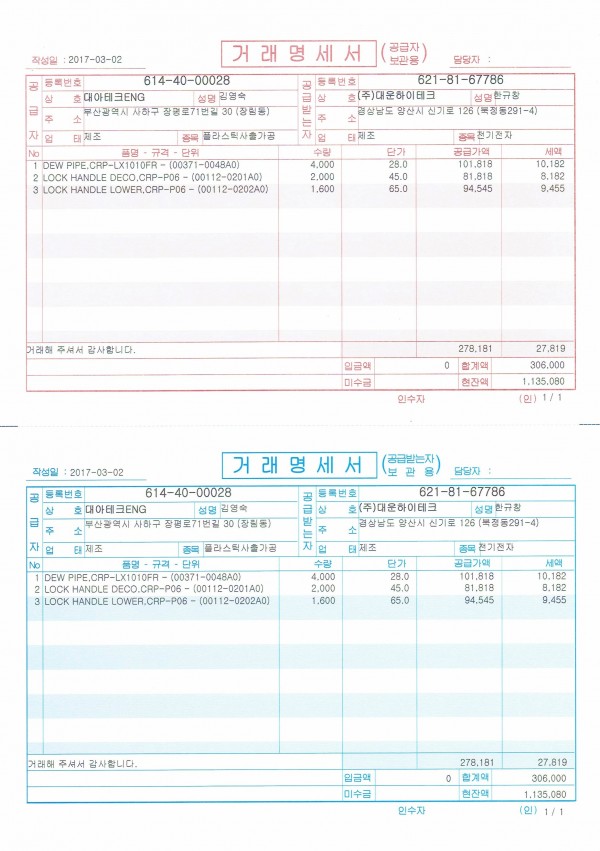 작성일 : 2017-03-02 거래명세서 (공급자 보관용) 담당자 :
공급자 등록번호 614-40-00028 공급받는자 등록번호 621-81-67786
상 호 대아테크ENG 성명 김영숙 상 호 (주)대운하이테크 성명 한규창
주 소 부산광역시 사하구 장평로71번길 30 (장림동) 주 소 경상남도 양산시 신기로 126 (북정동291-4)
업 태 제조 종목 플라스틱사출가공 업 태 제조 종목 전기전자
No 품명 - 규격 - 단위 수량 단가 공급가액 세액
1 DEW PIPE,CRP-LX1010FR - (00371-0048A0) 4,000 28.0 101,818 10,182
2 LOCK HANDLE DECO,CRP-P06 - (00112-0201A0) 2,000 45.0 81,818 8,182
3 LOCK HANDLE LOWER,CRP-P06 - (00112-0202A0) 1,600 65.0 94,545 9,455
거래해 주셔서 감사합니다. 278,181 27,819
입금액 0 합계액 306,000
미수금 현잔액 1,135,080
인수자 (인) 1 / 1
작성일 : 2017-03-02 거래명세서 (공급받는자 보관용) 담당자 :
공급자 등록번호 614-40-00028 공급받는자 등록번호 621-81-67786
상 호 대아테크ENG 성명 김영숙 상 호 (주)대운하이테크 성명 한규창
주 소 부산광역시 사하구 장평로71번길 30 (장림동) 주 소 경상남도 양산시 신기로 126 (북정동291-4)
업 태 제조 종목 플라스틱사출가공 업 태 제조 종목 전기전자
No 품명 - 규격 - 단위 수량 단가 공급가액 세액
1 DEW PIPE,CRP-LX1010FR - (00371-0048A0) 4,000 28.0 101,818 10,182
2 LOCK HANDLE DECO,CRP-P06 - (00112-0201A0) 2,000 45.0 81,818 8,182
3 LOCK HANDLE LOWER,CRP-P06 - (00112-0202A0) 1,600 65.0 94,545 9,455
거래해 주셔서 감사합니다. 278,181 27,819
입금액 0 합계액 306,000
미수금 현잔액 1,135,080
인수자 (인) 1 / 1